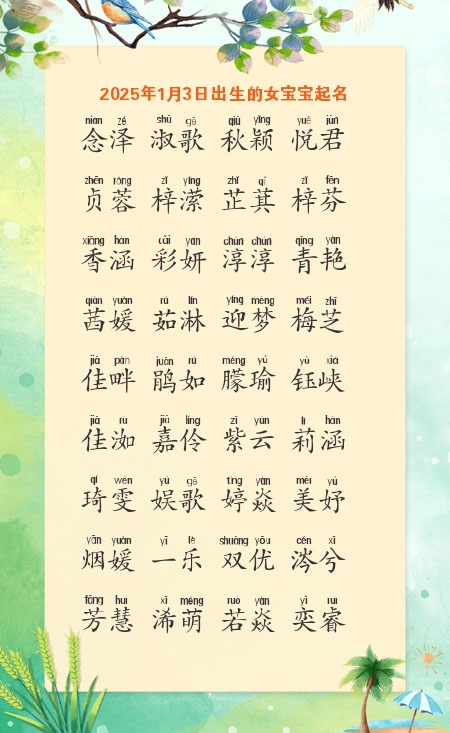 2025年1月3日出生的女宝宝起名
niàn zé shū gē qiū yǐng yuè jūn
念泽 淑歌 秋颖 悦君
zhēn róng zǐ yíng zhǐ qí zǐ fēn
贞蓉 梓潆 芷萁 梓芬
xiāng hán cǎi yán chún chún qīng yàn
香涵 彩妍 淳淳 青艳
qiàn yuàn rú lín yíng mèng méi zhī
茜媛 茹淋 迎梦 梅芝
jiā pàn juān rú méng yú yù xiá
佳畔 鹃如 朦瑜 钰峡
jiā rù jiā líng zǐ yún lì hán
佳洳 嘉伶 紫云 莉涵
qí wén yú gē tíng yàn měi yú
琦雯 娱歌 婷焱 美妤
yān yuàn yī lè shuāng yōu cén xī
烟媛 一乐 双优 涔兮
fāng huì xī méng ruò yàn yì ruì
芳慧 浠萌 若焱 奕睿